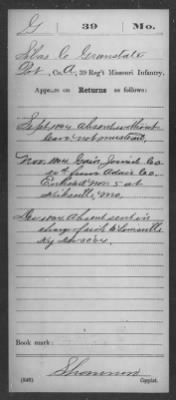 G 39 Mo.
Co. A, 39 Reg't Missouri Infantry.
Appears on Returns as follows:
Sept 1864 Absent without
leave not mustered
Nov. 1864 Gain, Joined Co
from Adair Co.
Enlisted Nov 5 at
Kirksville, Mo.
Dec 1864 Absent sent in
charge of sick to Louisville
Ky
Book mark:
(546) Copyist.